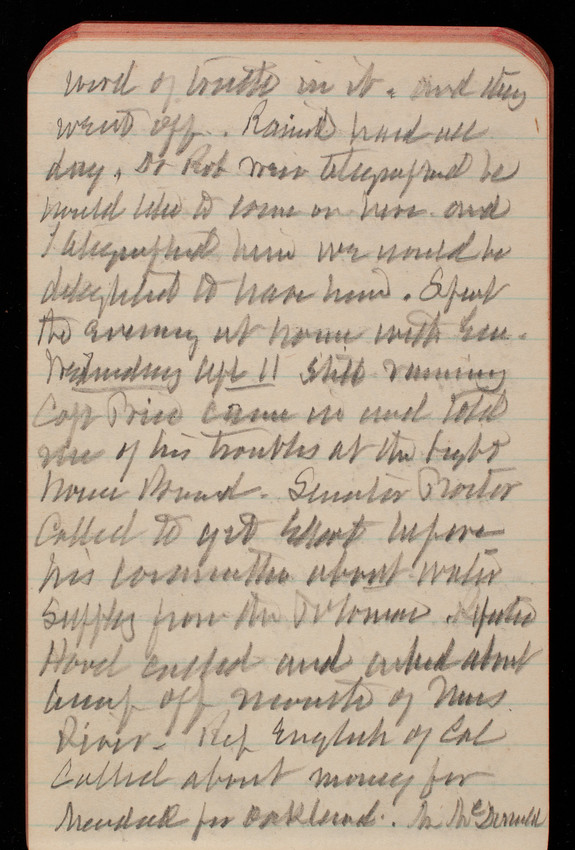 word of truth in it. and they
went off. Rained hard all
day. Dr Rob New telegraphed he
would like to come on here and
I telegraphed him we would be
delighted to have him. Spent
the evening at home with Gen.
Wednesday Apl 11 still raining
Capt Price came in and told
me of his troubles at the Light
House Board. Senator Proctor
Called to get Elliot before
his committee about water
Supply from the Potomac.
called and asked about
off mouth of
River. Rep English of Cal
Called about money for
for Oakland. Mr McDermott